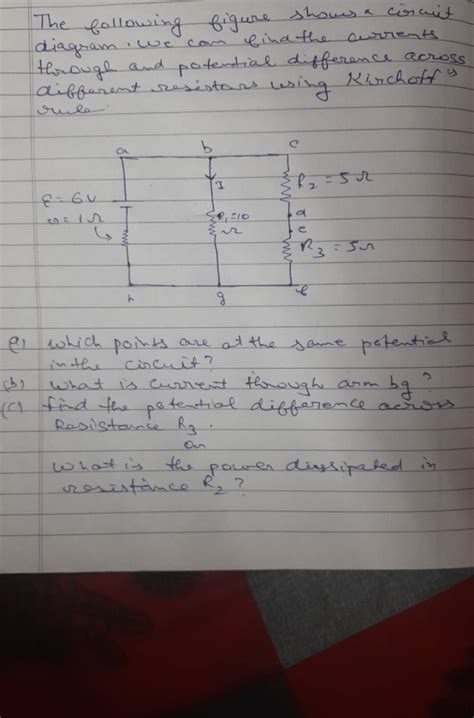 The following figure shows a circuit
diagram. We can find the currents
through and potential difference across
different resistors using Kirchoff's
rule.
a b c
I
R₂ = 5 Ω
ε = 6V
r = 1 Ω
R₁ = 10
Ω
d
e
R₃ = 5Ω
h g f
which points are at the same potential
in the circuit?
(b) What is current through arm bg?
(c) find the potential difference across
Resistance R₃.
or
What is the power dissipated in
resistance R₂?